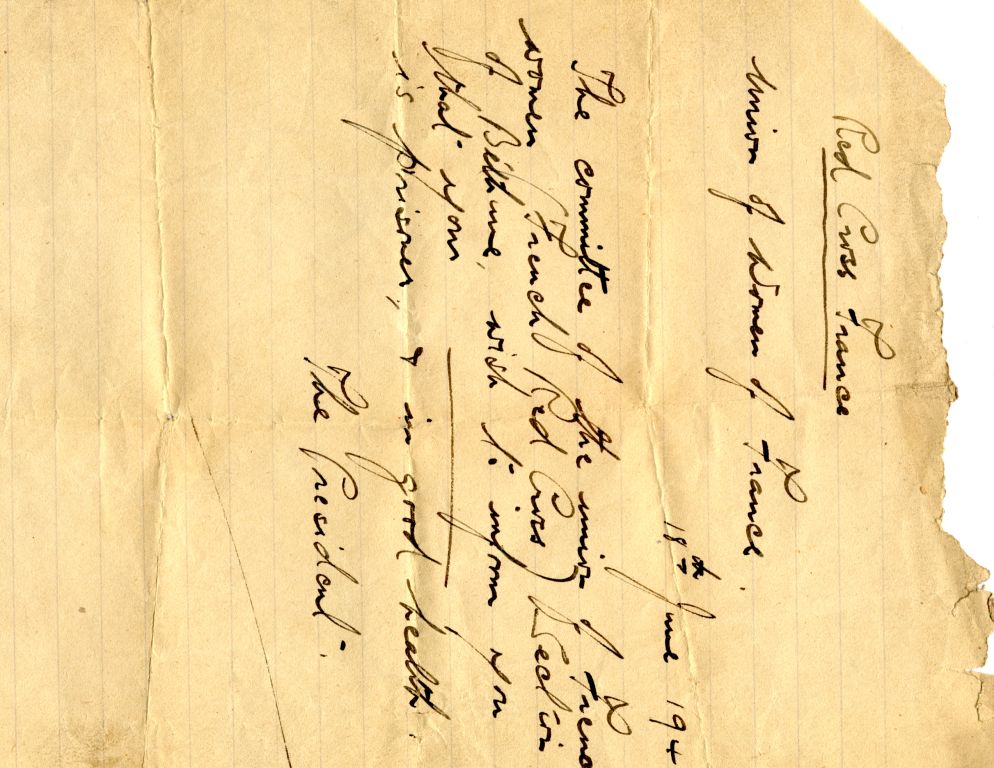 Red Cross France
Union of Women of France.
18th June 194
The committee of the union of Frenc
women (French Red Cross) Section
of Béthune, wish to inform you
that your
is prisoner, & in good health.
The President.